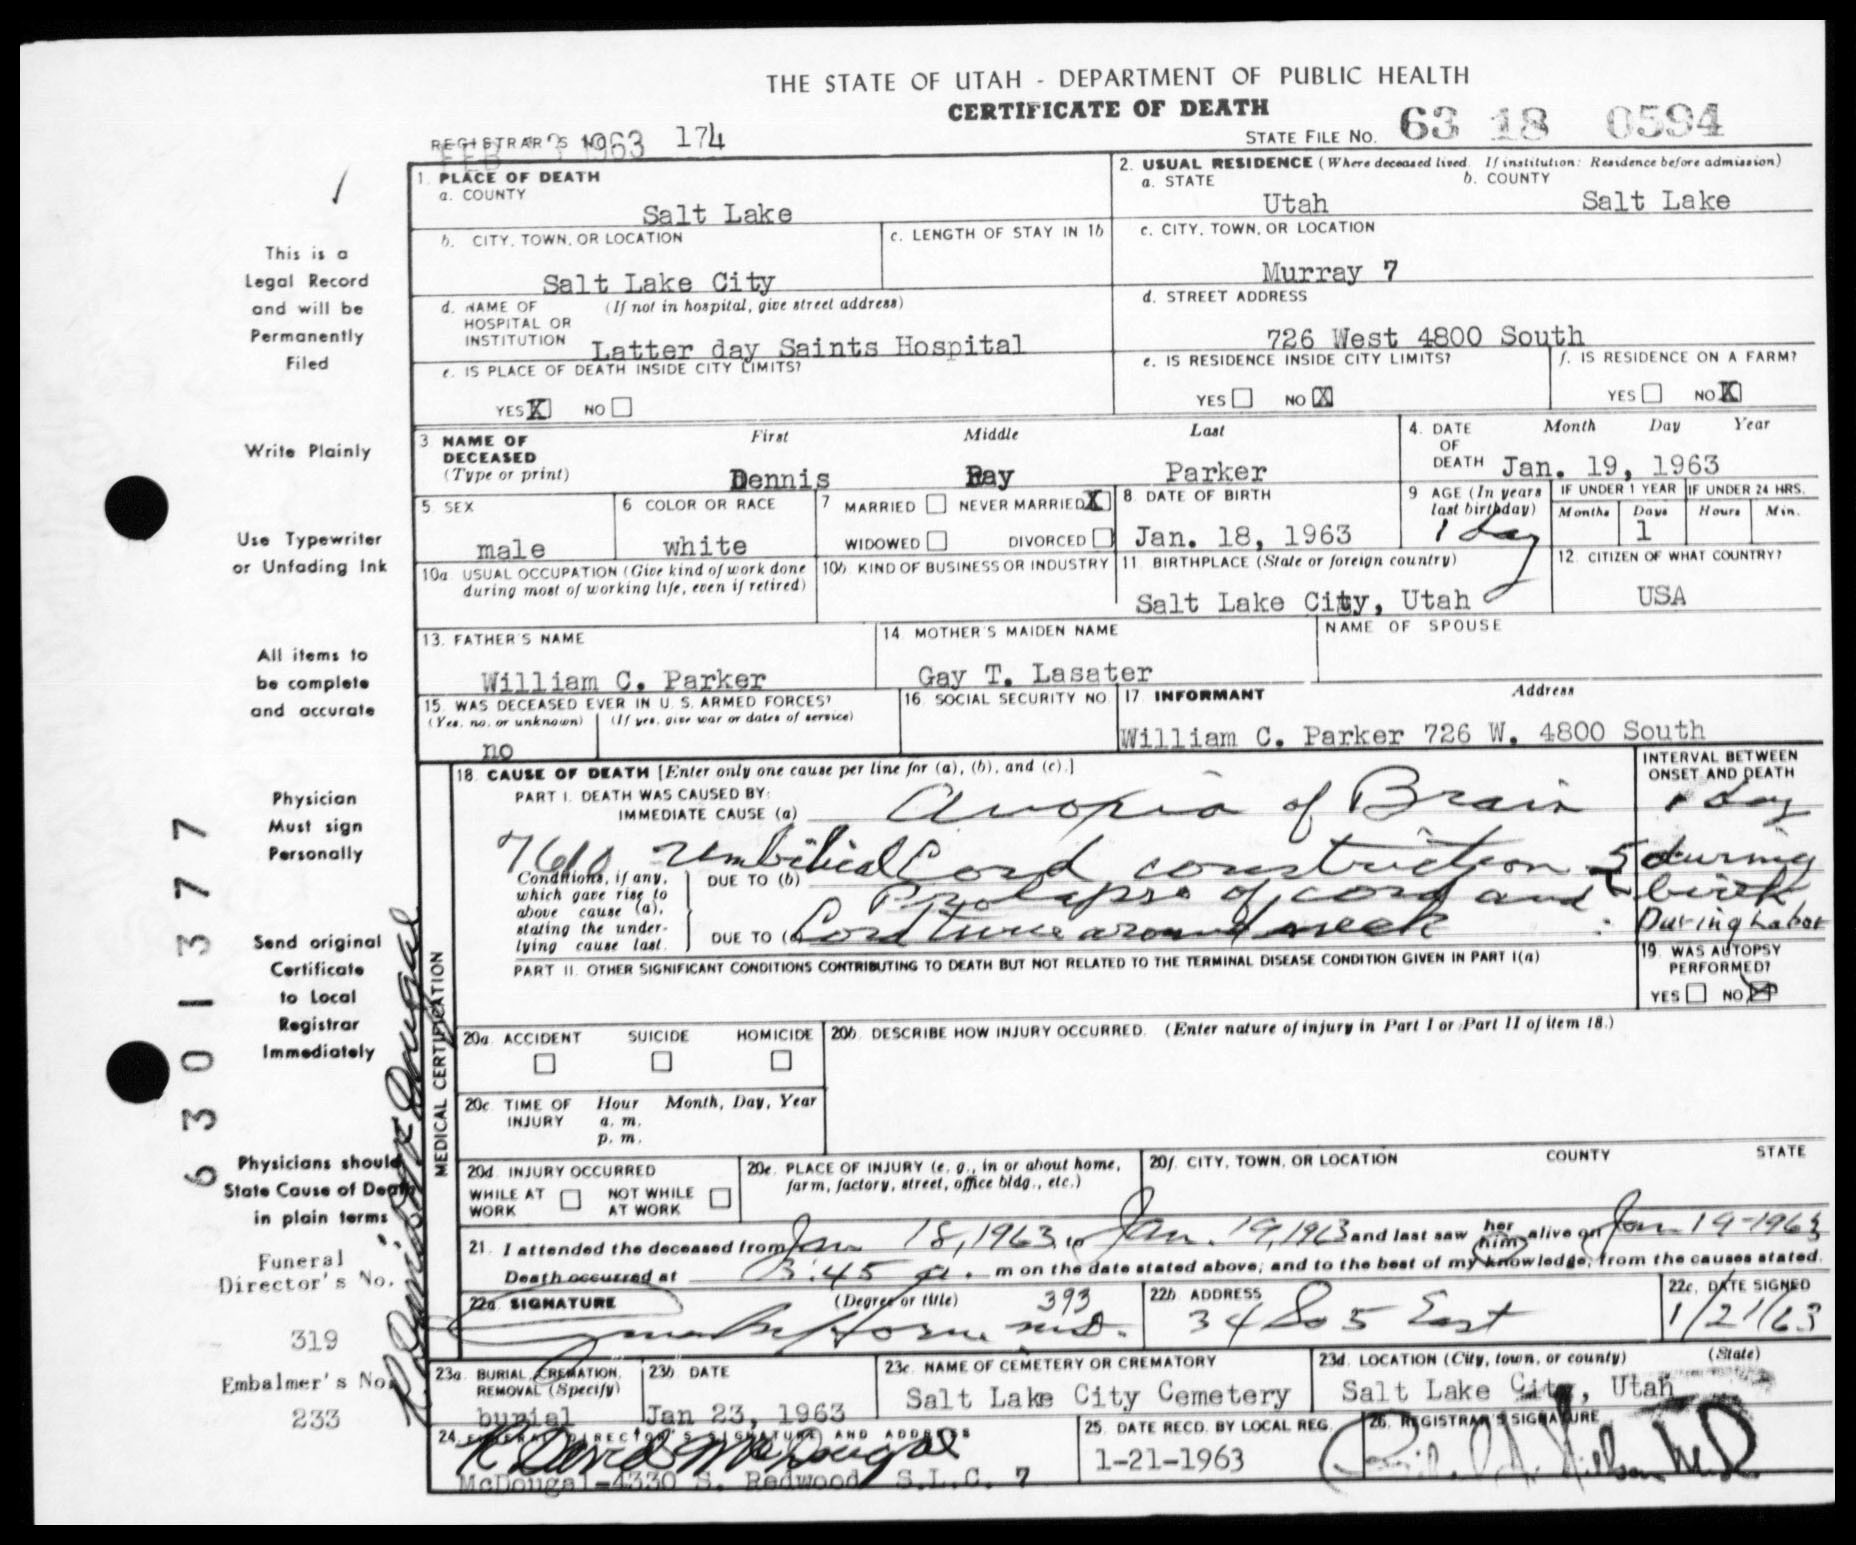 THE STATE OF UTAH - DEPARTMENT OF PUBLIC HEALTH
CERTIFICATE OF DEATH
REGISTRAR'S NO. 174
FEB 1963
STATE FILE NO. 63 18 0594
1. PLACE OF DEATH
a. COUNTY
Salt Lake
2. USUAL RESIDENCE (Where deceased lived. If institution: Residence before admission)
a. STATE
Utah
b. COUNTY
Salt Lake
b. CITY, TOWN, OR LOCATION
Salt Lake City
c. LENGTH OF STAY IN 1b
c. CITY, TOWN, OR LOCATION
Murray 7
d. NAME OF HOSPITAL OR INSTITUTION (If not in hospital, give street address)
Latter day Saints Hospital
d. STREET ADDRESS
726 West 4800 South
e. IS PLACE OF DEATH INSIDE CITY LIMITS?
YES X NO
e. IS RESIDENCE INSIDE CITY LIMITS?
YES NO X
f. IS RESIDENCE ON A FARM?
YES NO X
3 NAME OF DECEASED (Type or print)
First Middle Last
Dennis Ray Parker
4. DATE OF DEATH
Month Day Year
Jan. 19, 1963
5. SEX
male
6 COLOR OR RACE
white
7 MARRIED NEVER MARRIED X
WIDOWED DIVORCED
8. DATE OF BIRTH
Jan. 18, 1963
9 AGE (In years last birthday)
1 day
IF UNDER 1 YEAR
Months Days
1
IF UNDER 24 HRS.
Hours Min.
10a. USUAL OCCUPATION (Give kind of work done during most of working life, even if retired)
10b. KIND OF BUSINESS OR INDUSTRY
11. BIRTHPLACE (State or foreign country)
Salt Lake City, Utah
12. CITIZEN OF WHAT COUNTRY?
USA
13. FATHER'S NAME
William C. Parker
14 MOTHER'S MAIDEN NAME
Gay T. Lasater
NAME OF SPOUSE
15. WAS DECEASED EVER IN U. S. ARMED FORCES?
(Yes, no, or unknown) (If yes, give war or dates of service)
no
16. SOCIAL SECURITY NO
17. INFORMANT Address
William C. Parker 726 W. 4800 South
MEDICAL CERTIFICATION
18. CAUSE OF DEATH [Enter only one cause per line for (a), (b), and (c).]
INTERVAL BETWEEN ONSET AND DEATH
PART I. DEATH WAS CAUSED BY:
IMMEDIATE CAUSE (a) Anoxia of Brain
1 day
Conditions, if any, which gave rise to above cause (a), stating the underlying cause last.
DUE TO (b) Umbilical Cord constriction
during birth
Prolapse of cord and
DUE TO (c) Cord twice around neck
During Labor
PART II. OTHER SIGNIFICANT CONDITIONS CONTRIBUTING TO DEATH BUT NOT RELATED TO THE TERMINAL DISEASE CONDITION GIVEN IN PART I(a)
19. WAS AUTOPSY PERFORMED?
YES NO X
20a. ACCIDENT SUICIDE HOMICIDE
20b. DESCRIBE HOW INJURY OCCURRED. (Enter nature of injury in Part I or Part II of item 18.)
20c. TIME OF INJURY Hour Month, Day, Year
a. m.
p. m.
20d. INJURY OCCURRED
WHILE AT WORK NOT WHILE AT WORK
20e. PLACE OF INJURY (e. g., in or about home, farm, factory, street, office bldg., etc.)
20f. CITY, TOWN, OR LOCATION COUNTY STATE
21. I attended the deceased from Jan 18, 1963 to Jan. 19, 1963 and last saw her him alive on Jan 19-1963
Death occurred at 3:45 a. m on the date stated above; and to the best of my knowledge, from the causes stated.
22a. SIGNATURE (Degree or title)
393
Horne M.D.
22b. ADDRESS
34 So 5 East
22c. DATE SIGNED
1/21/63
23a. BURIAL, CREMATION, REMOVAL (Specify)
burial
23b DATE
Jan 23, 1963
23c. NAME OF CEMETERY OR CREMATORY
Salt Lake City Cemetery
23d. LOCATION (City, town, or county) (State)
Salt Lake City, Utah
24. FUNERAL DIRECTOR'S SIGNATURE AND ADDRESS
R David McDougal
McDougal-4330 S. Redwood S.L.C. 7
25. DATE RECD. BY LOCAL REG.
1-21-1963
26. REGISTRAR'S SIGNATURE
This is a
Legal Record
and will be
Permanently
Filed
Write Plainly
Use Typewriter
or Unfading Ink
All items to
be complete
and accurate
Physician
Must sign
Personally
Send original
Certificate
to Local
Registrar
Immediately
Physicians should
State Cause of Death
in plain terms
Funeral
Director's No.
319
Embalmer's No.
233
6301377
R David McDougal